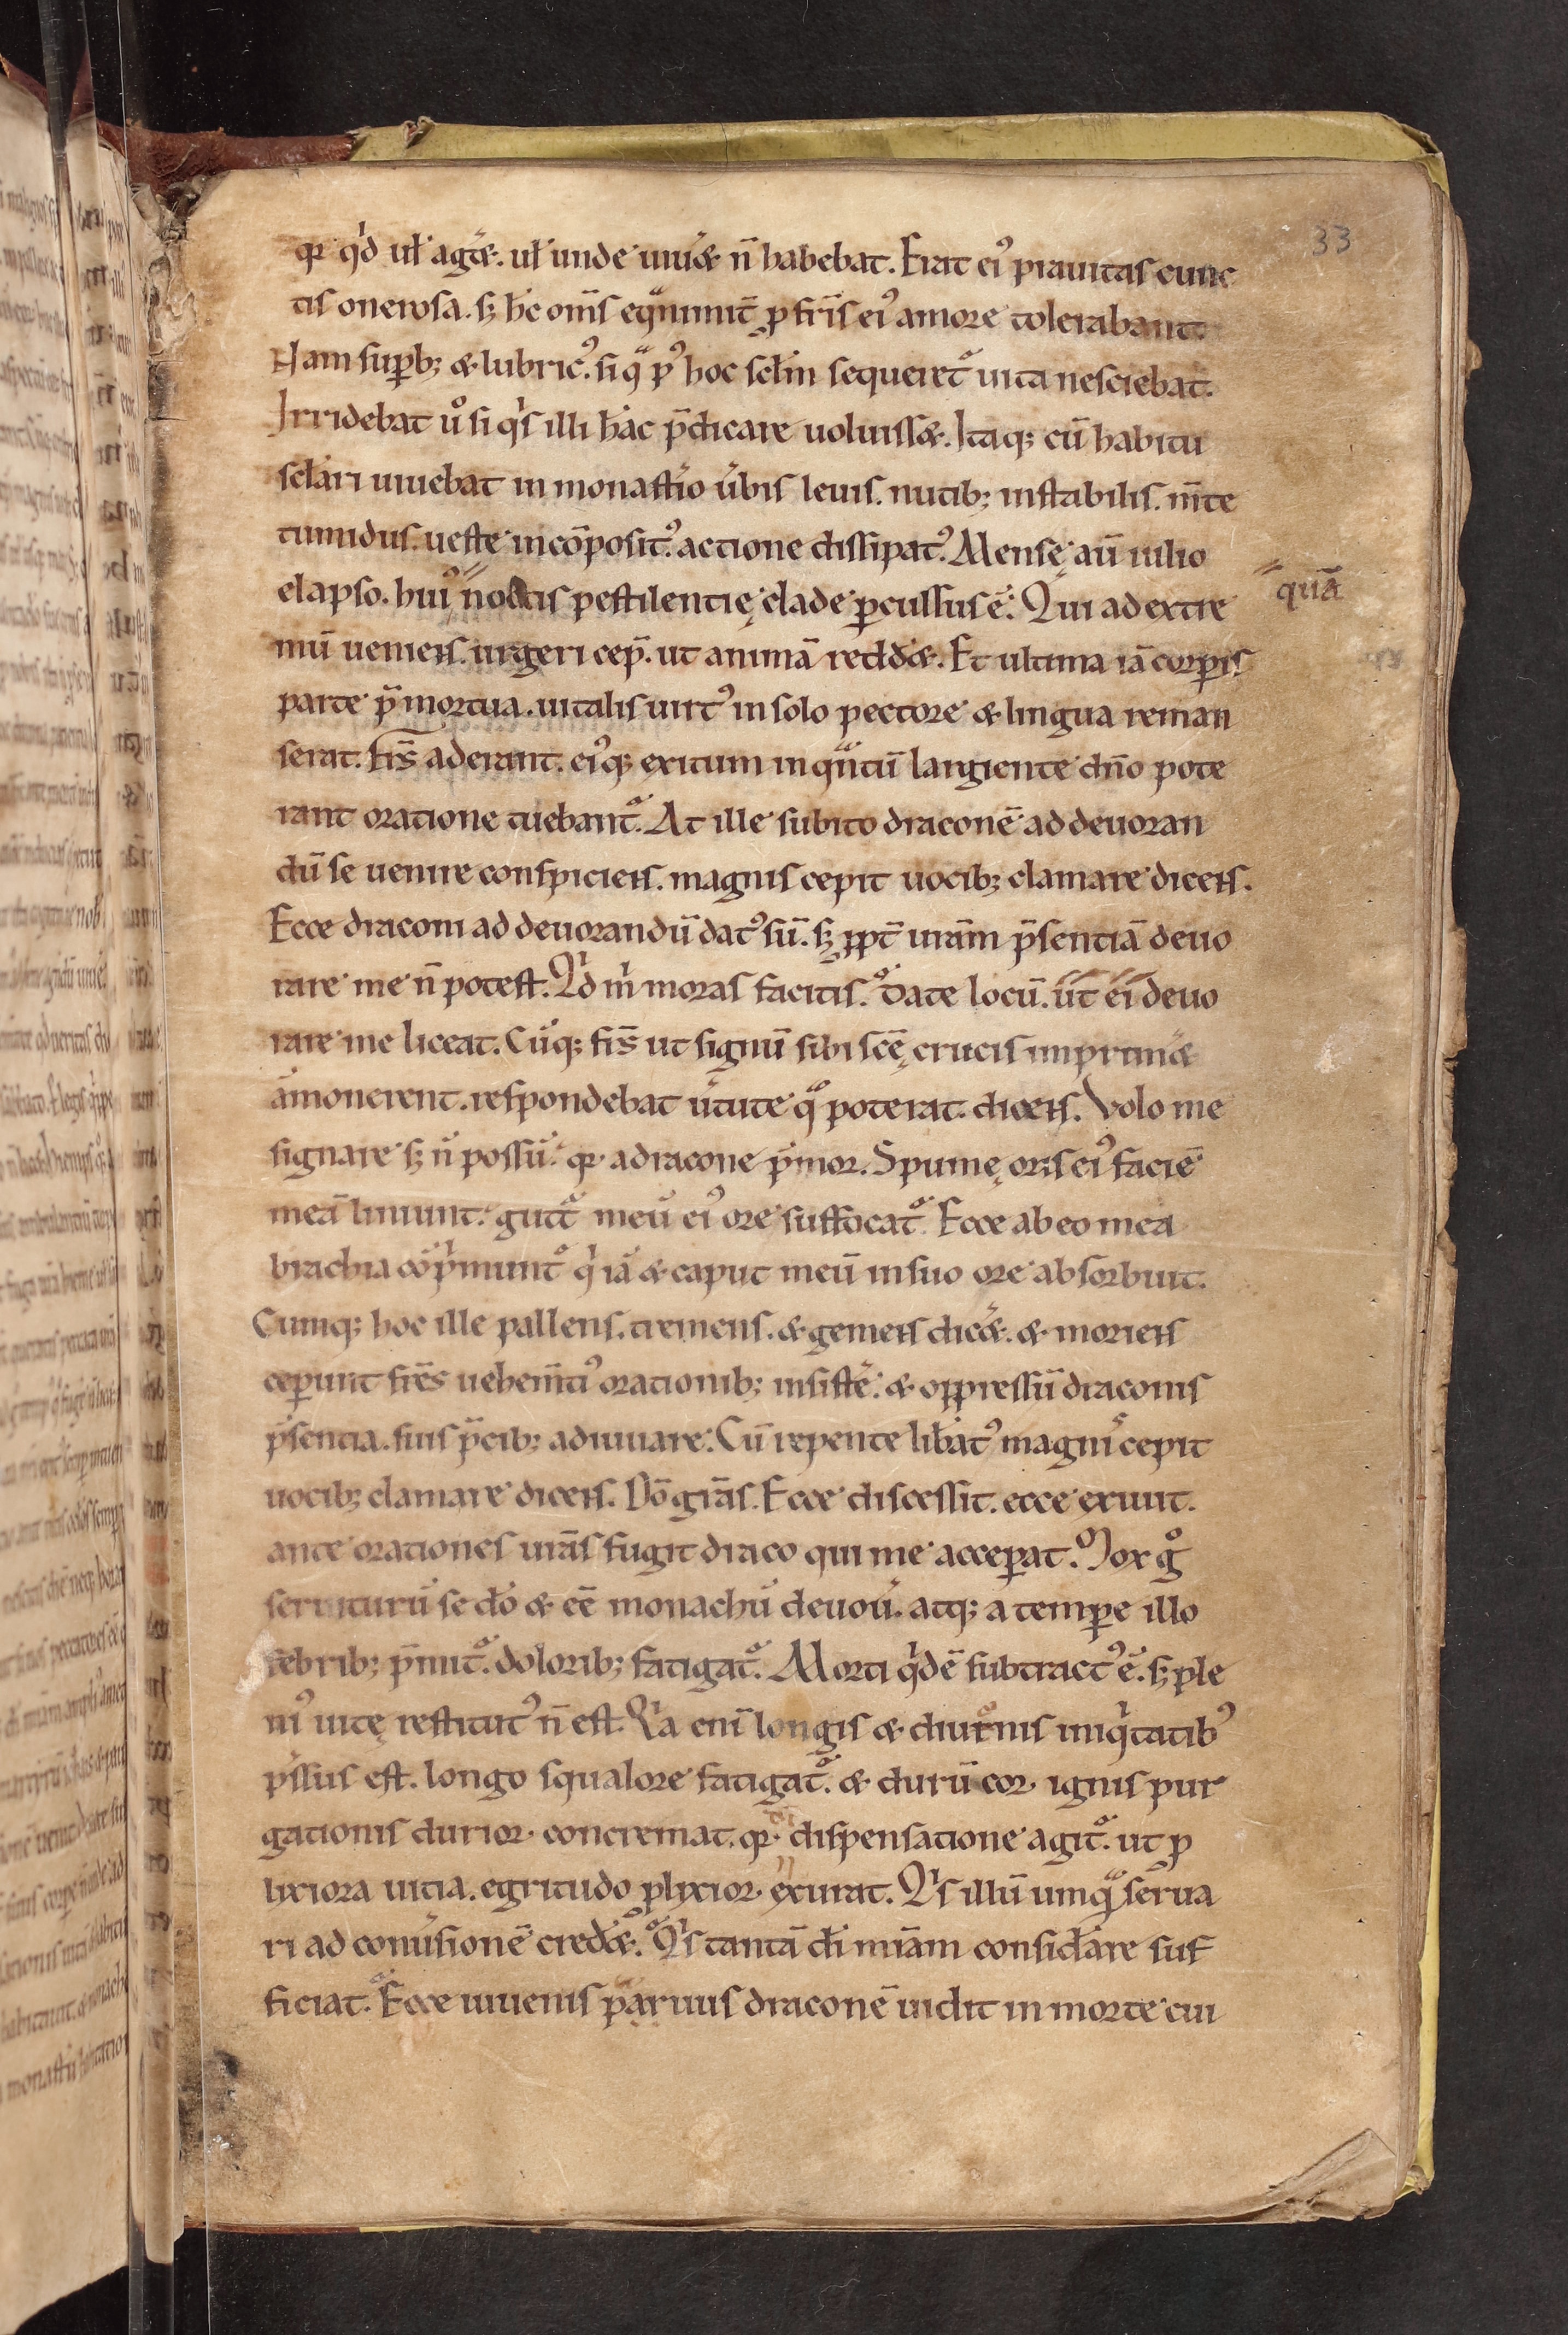 33
qr qͥd uł agͥet. uł unde uiuͥet n̄ habebat. Erat eiꝰ prauitas cunc
tis onerosa. sꝫ h̄c om̄s eqͣnimit̄ ꝓ fr̄is eiꝰ amore tolerabant.
Nam suꝑbꝫ & lubricꝰ. si qͣ pꝰ hoc sc̄lm sequeret᷑ uita nesciebat.
Irridebat u̾o si qͥs illi hͦ ac p̄dicare uoluisset. Itaqꝫ cū habitu
sc̄lari uiuebat in monast̾io u̾bis leuis. nutibꝫ instabilis. m̄te
tumidus. ueste incōpositꝰ. actione dissipatꝰ. Mense aū iulio
elapso. huiꝰ noctis pestilentię clade ꝑcussus ē. Qui ad extre
quā
mū ueniens. urgeri cep̄. ut animā redd̾et. Et ultima iā corꝑis
parte p̄mortua. uitalis uirtꝰ in solo pectore & lingua reman
serat. fr̄s aderant. eiꝰqꝫ exitum inqͣntū largiente dn̄o pote
rant oratione tuebant᷑. At ille subito draconē ad deuoran
dū se uenire conspiciens. magnis cepit uocibꝫ clamare dicens.
Ecce draconi ad deuorandū datꝰ sū. sꝫ ꝓpt̄ urām p̄sentiā deuo
rare me n̄ potest. Qͥd mͥ moras facitis. date locū. ut ei deuo
rare me liceat. Cūqꝫ fr̄s ut signū sibi sc̄ę crucis imprim̾et
āmonerent. respondebat u̾tute qͣ poterat dicens. Volo me
signare sꝫ n̄ possū. qr a dracone p̄mor. Spumę oris eiꝰ faciē
meā liniunt. gutt᷑ meū eiꝰ ore suffocat᷑. Ecce ab eo mea
brachia cōpͥmunt᷑ qͥ iā & caput meū in suo ore absorbuit.
Cumqꝫ hoc ille pallens. tremens. & gemens dic̾et. & moriens
ceꝑunt fr̄es uehem̄tiꝰ orationibꝫ insist̾e. & oppressū draconis
p̄sentia. suis p̄cibꝫ adiuuare. Cū repente lib̾atꝰ magnis cepit
uocibꝫ clamare dicens. Dō grās. Ecce discessit. ecce exiuit.
ante orationes urās fugit draco qui me acceꝑat. Mox gͦ
seruiturū se dō & eē monachū deuou̾. atqꝫ a temꝑe illo
febribꝫ p̄mit᷑. doloribꝫ fatigat᷑. Morti qͥdē subtractꝰ ē. sꝫ ple
niꝰ uitę restitutꝰ n̄ est. Qͥa eni longis & diutnis iniqͥtatibꝰ
p̄ssus est. longo squalore fatigat᷑. & durū cor ignis pur
gationis durior concremat. qr dͥ dispensatione agit᷑. ut ꝓ
lixiora uitia. egritudo ꝓlixior exurat. Qͥs illū umqͣ serua
ri ad conu̾sionē cred̾et. Qͥs tantā di mīam consid̾are suf
ficiat. Ecce iuuenis paruus draconē uidit in morte cui